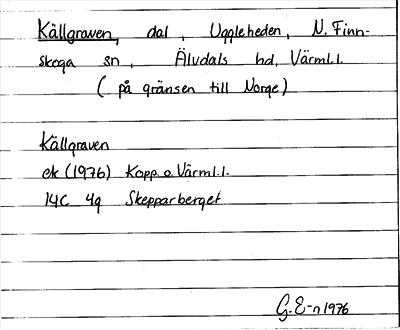 Källgraven, dal, Uggleheden, N. Finn-
skoga sn, Älvdals hd, Värml.l.
(på gränsen till Norge)
Källgraven
ek (1976) Kopp. o. Värml.l.
14C 4g Skepparberget
G.E-n 1976